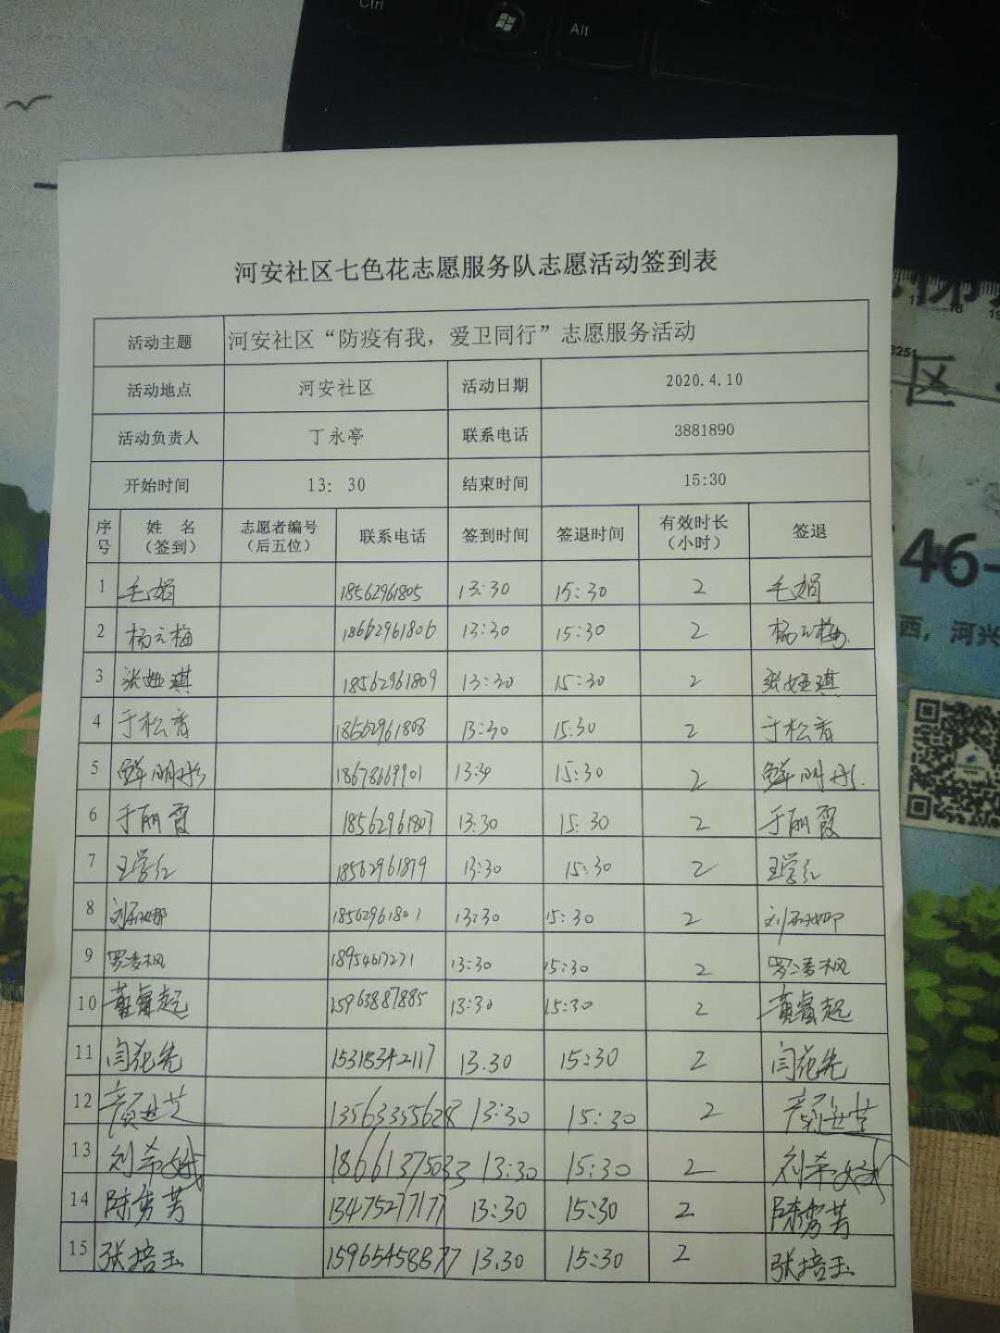 Ctrl
Alt
河安社区七色花志愿服务队志愿活动签到表
活动主题 河安社区“防疫有我，爱卫同行”志愿服务活动
活动地点 河安社区 活动日期 2020.4.10
活动负责人 丁永亭 联系电话 3881890
开始时间 13: 30 结束时间 15:30
序号 姓 名（签到） 志愿者编号（后五位） 联系电话 签到时间 签退时间 有效时长（小时） 签退
1 毛娟 18562961805 13:30 15:30 2 毛娟
2 杨云梅 18662961806 13:30 15:30 2 杨云梅
3 张娅琪 18562961809 13:30 15:30 2 张娅琪
4 于松青 18562961808 13:30 15:30 2 于松青
5 鲜明彤 18678669901 13:30 15:30 2 鲜明彤
6 于丽霞 18562961807 13:30 15:30 2 于丽霞
7 王学红 18562961879 13:30 15:30 2 王学红
8 刘 18562961801 13:30 15:30 2 刘
9 罗凌枫 18954617271 13:30 15:30 2 罗凌枫
10 董睿起 15963887885 13:30 15:30 2 董睿起
11 闫花先 15318342117 13.30 15:30 2 闫花先
12 颜世芝 13563355628 13:30 15:30 2 颜世芝
13 刘希娥 18661375033 13:30 15:30 2 刘希娥
14 陈秀芳 13475277177 13:30 15:30 2 陈秀芳
15 张培玉 15965458877 13.30 15:30 2 张培玉
区
46-
西，河兴